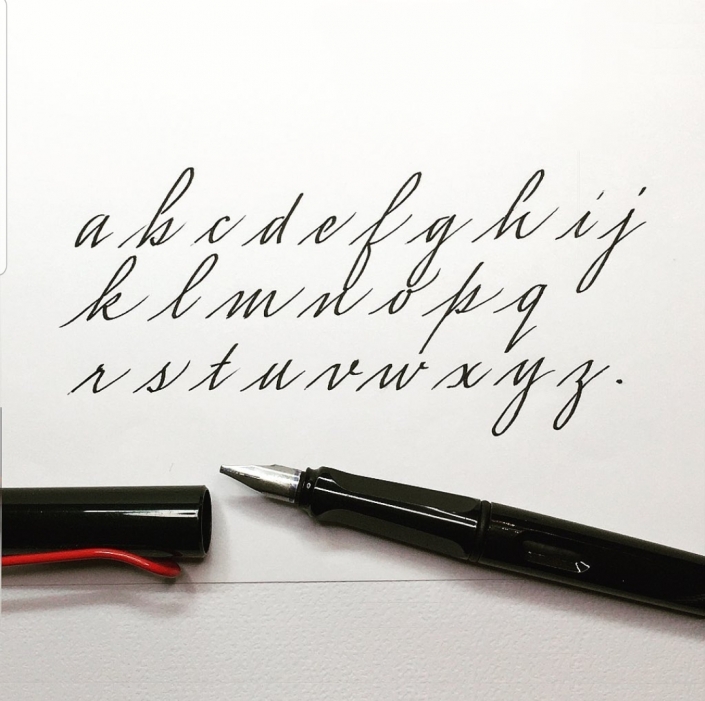 a b c d e f g h i j
k l m n o p q
r s t u v w x y z .